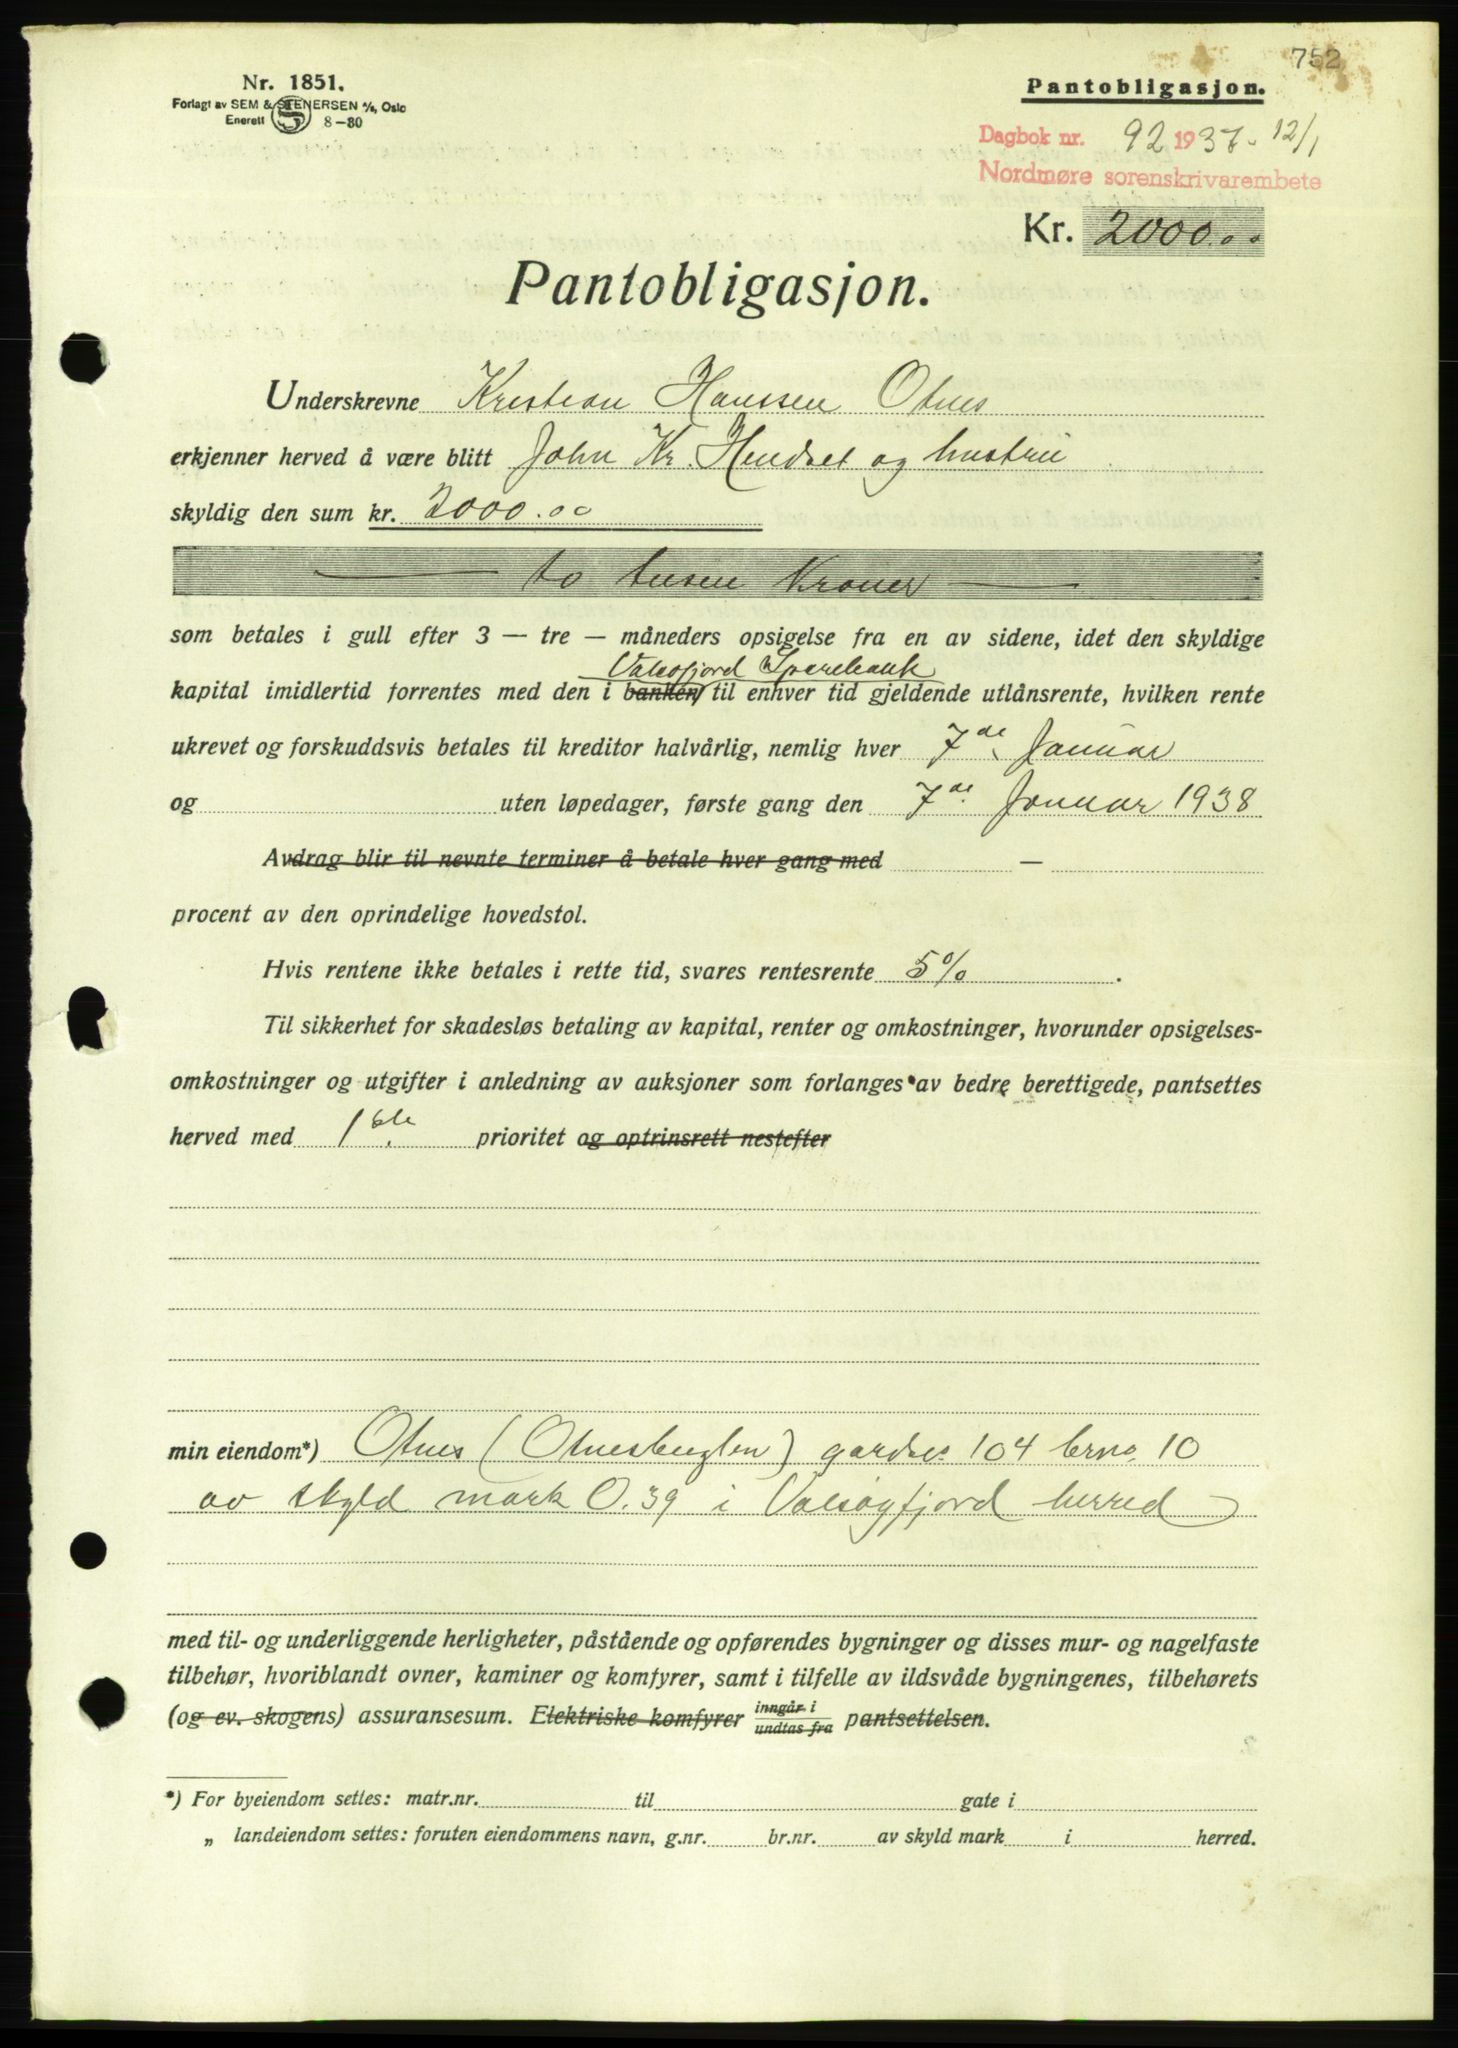 752
Nr. 1851.
Forlagt av SEM & STENERSEN A/S, Oslo
Enerett 8-30
Pantobligasjon.
Dagbok nr. 92 1937 - 12/1
Nordmøre sorenskrivarembete
Kr. 2000.00
Pantobligasjon.
Underskrevne Kristian Hanssen Otnes
erkjenner herved å være blitt John Kr. Hendset og hustru
skyldig den sum kr. 2000.00
— to tusen Kroner —
som betales i gull efter 3 — tre — måneders opsigelse fra en av sidene, idet den skyldige
Valsøfjord Sparebank
kapital imidlertid forrentes med den i banken til enhver tid gjeldende utlånsrente, hvilken rente
ukrevet og forskuddsvis betales til kreditor halvårlig, nemlig hver 7de Januar
og uten løpedager, første gang den 7de Januar 1938
Avdrag blir til nevnte terminer å betale hver gang med —
procent av den oprindelige hovedstol.
Hvis rentene ikke betales i rette tid, svares rentesrente 5%.
Til sikkerhet for skadesløs betaling av kapital, renter og omkostninger, hvorunder opsigelses-
omkostninger og utgifter i anledning av auksjoner som forlanges av bedre berettigede, pantsettes
herved med 1ste prioritet og optrinsrett nestefter
min eiendom*) Otnes ( ) gardsno 104 brno. 10
av skyld mark 0.39 i Valsøyfjord herred
med til- og underliggende herligheter, påstående og opførendes bygninger og disses mur- og nagelfaste
tilbehør, hvoriblandt ovner, kaminer og komfyrer, samt i tilfelle av ildsvåde bygningenes, tilbehørets
(og ev. skogens) assuransesum. Elektriske komfyrer inngår i / undtas fra pantsettelsen.
*) For byeiendom settes: matr.nr. til gate i
„ landeiendom settes: foruten eiendommens navn, g.nr. br.nr. av skyld mark i herred.